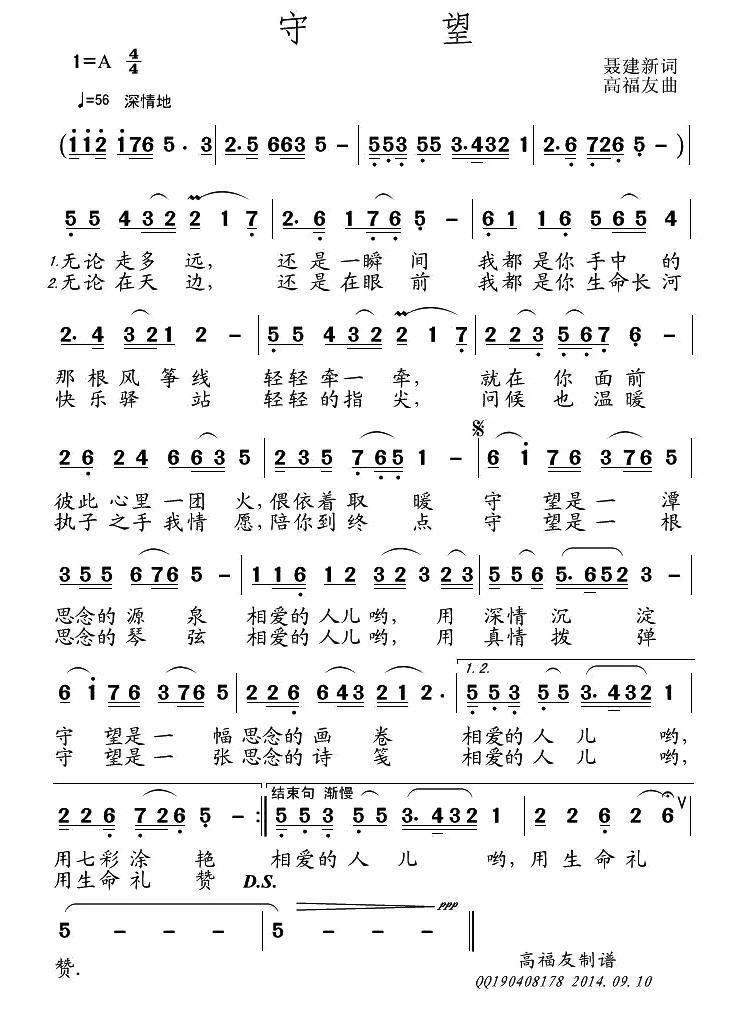 守 望
1=A 4/4
聂建新词
高福友曲
♩=56 深情地
(1 1 2 1 7 6 5 . 3 | 2 . 5 6 6 3 5 - | 5 5 3 5 5 3 . 4 3 2 1 | 2 . 6 7 2 6 5 - )
5 5 4 3 2 2 1 7 | 2 . 6 1 7 6 5 - | 6 1 1 6 5 6 5 4
1.无论 走多 远, 还 是 一瞬 间 我都 是你 手中 的
2.无论 在天 边, 还 是 在眼 前 我都 是你 生命 长河
2 . 4 3 2 1 2 - | 5 5 4 3 2 2 1 7 | 2 2 3 5 6 7 6 -
那 根 风 筝 线 轻轻 牵一 牵, 就在 你 面前
快 乐 驿 站 轻轻 的指 尖, 问候 也 温暖
2 6 2 4 6 6 3 5 | 2 3 5 7 6 5 1 - | 6 1 7 6 3 7 6 5
彼此 心里 一团 火, 偎依着 取 暖 守 望是 一 潭
执子 之手 我情 愿, 陪你到 终 点 守 望是 一 根
3 5 5 6 7 6 5 - | 1 1 6 1 2 3 2 3 2 3 | 5 5 6 5 . 6 5 2 3 -
思念的 源 泉 相爱的 人儿 哟, 用 深情 沉 淀
思念的 琴 弦 相爱的 人儿 哟, 用 真情 拨 弹
6 1 7 6 3 7 6 5 | 2 2 6 6 4 3 2 1 2 . | 1. 2. 5 5 3 5 5 3 . 4 3 2 1
守 望是 一 幅 思念的 画 卷 相爱的 人 儿 哟,
守 望是 一 张 思念的 诗 笺 相爱的 人 儿 哟,
结束句 渐慢
2 2 6 7 2 6 5 - :| 5 5 3 5 5 3 . 4 3 2 1 | 2 2 6 2 6 V
用七彩 涂 艳 相爱的 人 儿 哟, 用 生 命 礼
用生命 礼 赞 D.S.
5 - - - | 5 - - - ppp
赞.
高福友制谱
QQ190408178 2014.09.10